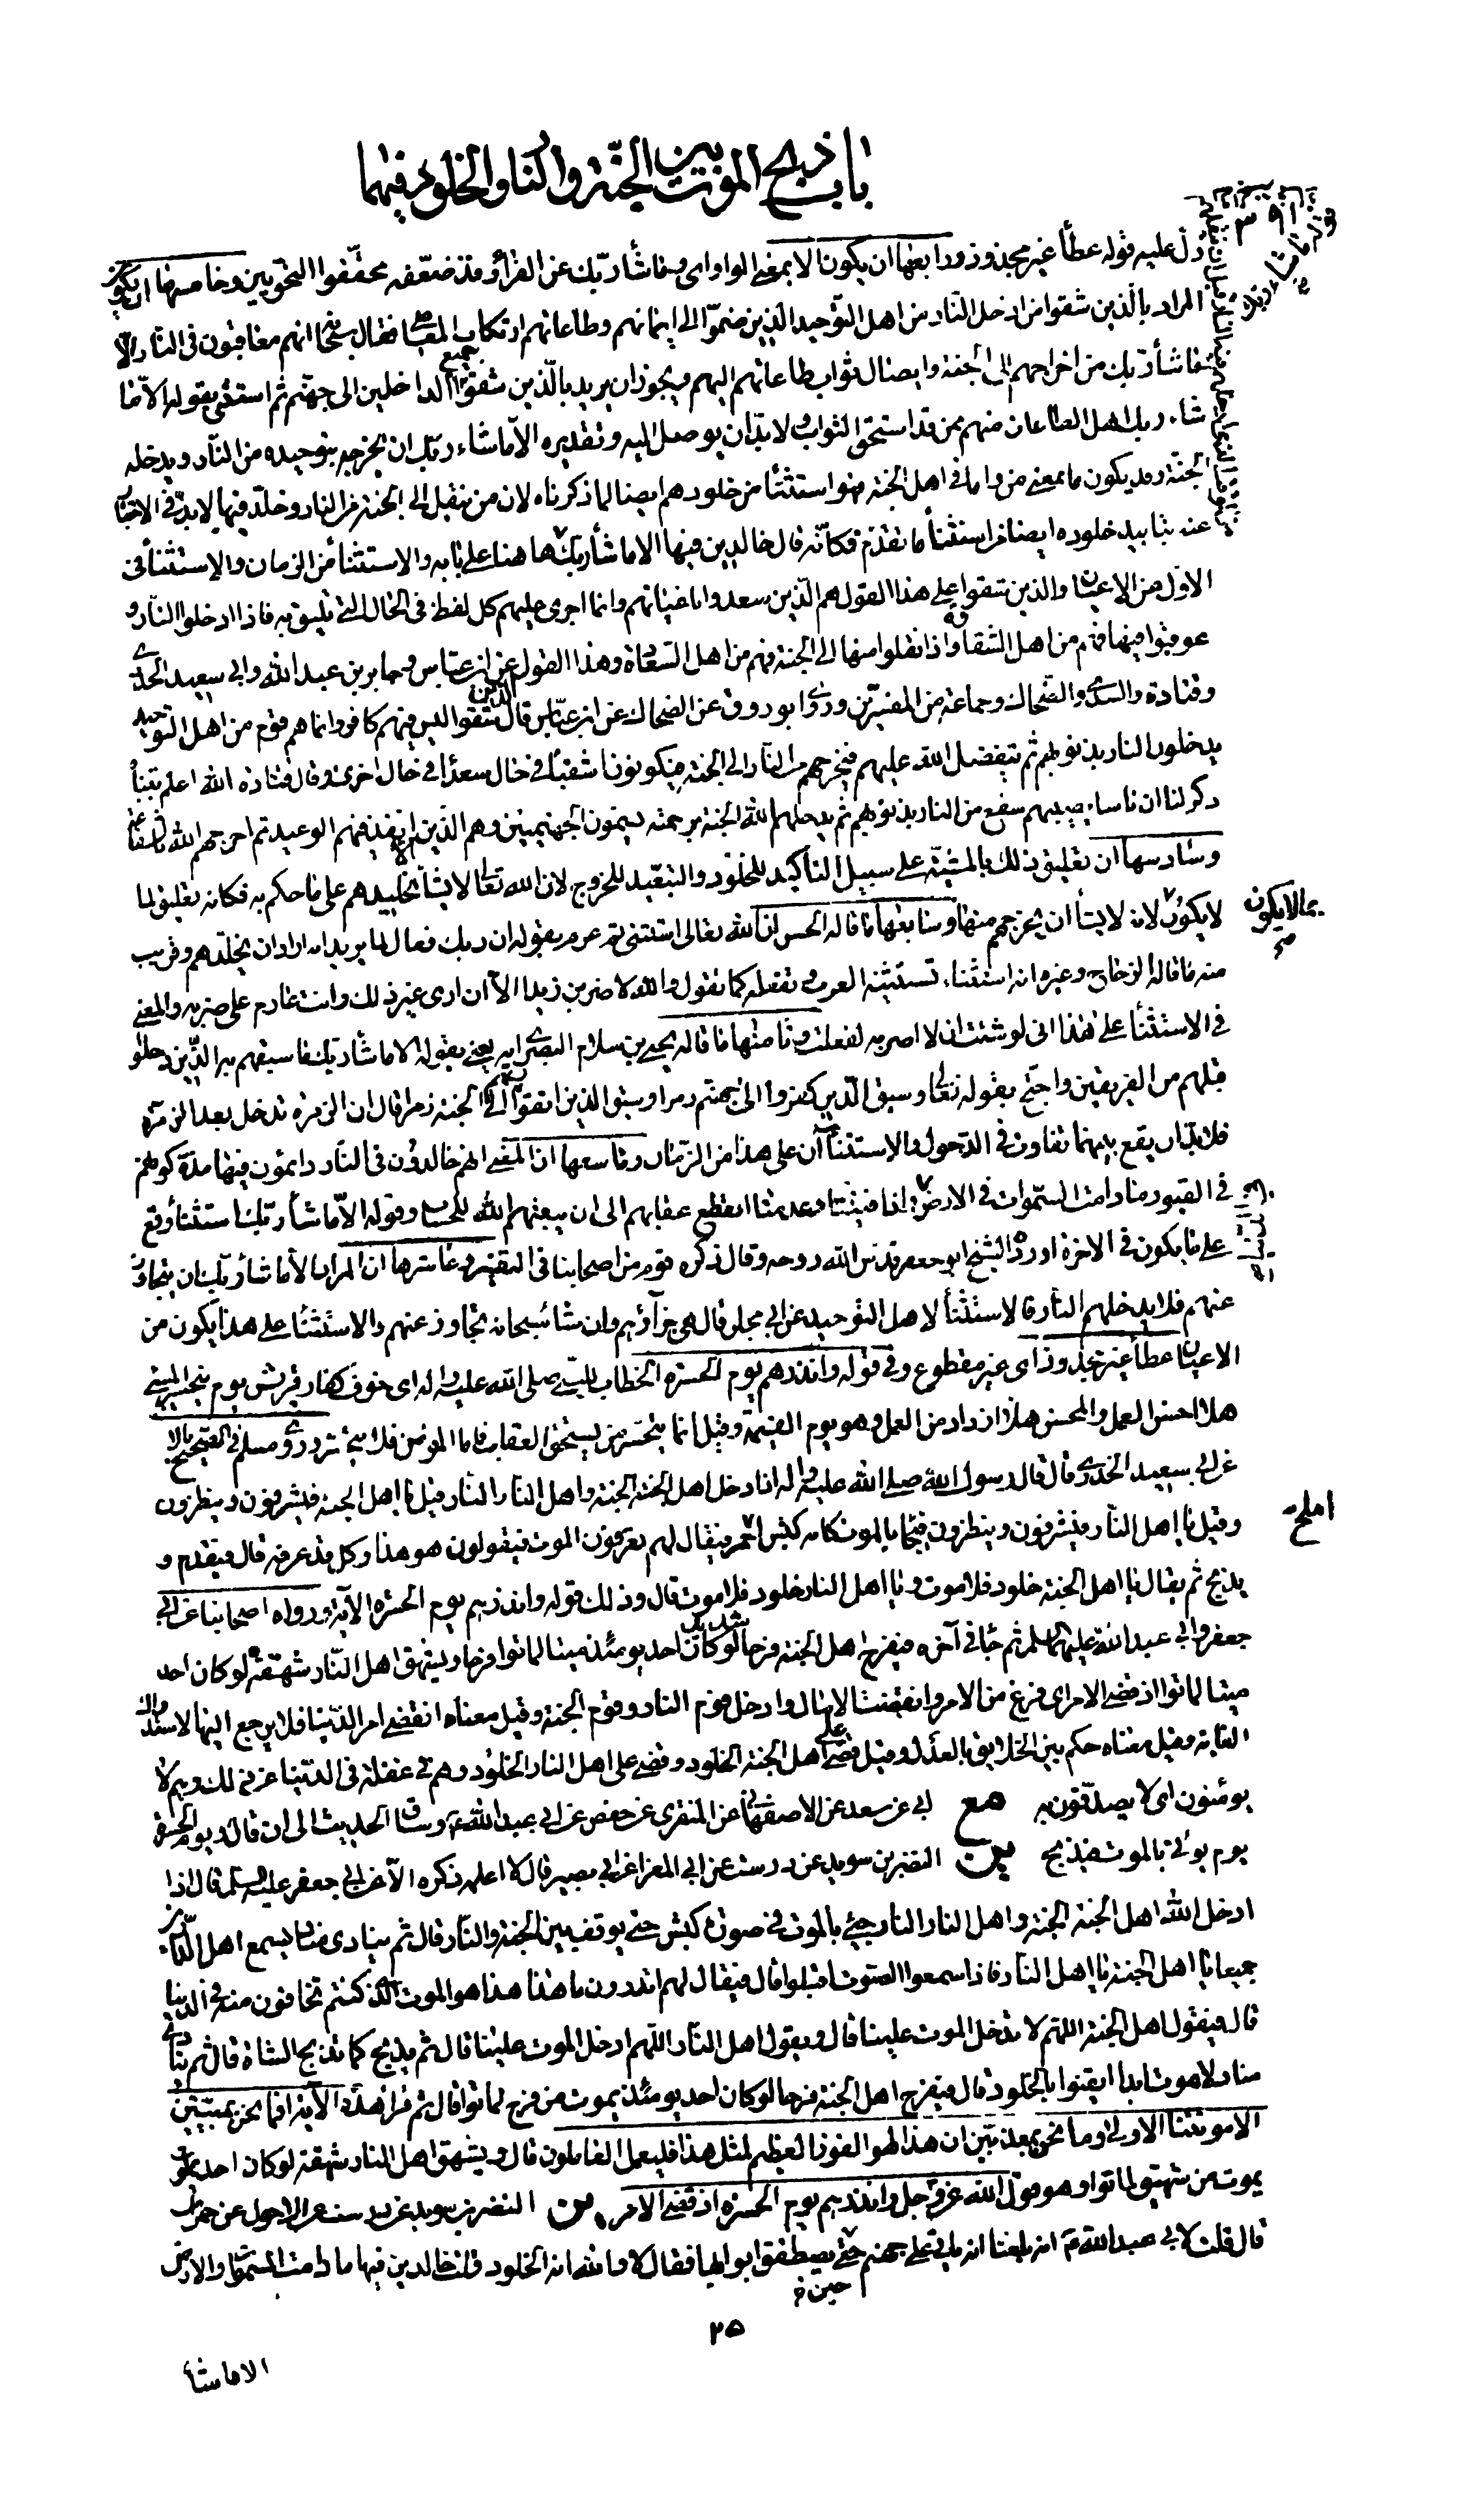 باب ذبح الموت بين الجنة والنار والخلود فيهما
٣٩١
دلّ عليه قوله عطاء غير مجذوذ ورابعها ان يكون الا بمعنى الواو اى وما شاء ربّك عن الفراء وقد ضعّفه محقّقوا النحويين وخامسها ان يكون
المراد بالّذين شقوا من ادخل النّار من اهل التوحيد الذين ضمّوا الى ايمانهم وطاعاتهم ارتكاب المعاصى فقال سبحانه انهم معاقبون فى النّار الّا
ما شاء ربّك من اخراجهم الى الجنة وايصال ثواب طاعاتهم اليهم ويجوز ان يريد بالّذين شقوا جميع الداخلين الى جهنّم ثم استثنى بقوله الّا ما
شاء ربك اهل الطاعات منهم ممن قد استحق الثواب ولا بدّ ان يوصل اليه وتقديره الّا ما شاء ربّك ان يخرجه بتوحيده من النّار ويدخله
الجنّة وقد يكون ما بمعنى من واما فى اهل الجنة فهو استثناء من خلودهم ايضا لما ذكرناه لان من ينقل الى الجنة من النار وخلّد فيها لا بدّ فى الاخبار
عنه بتابيد خلوده ايضا من استثناء ما تقدّم فكانّه قال خالدين فيها الا ما شاء ربّك ها هنا على بابه والاستثناء من الزمان والاستثناء فى
الاوّل من الاعيان والذين شقوا على هذا القول هم الّذين سعدوا باعيانهم وانما اجرى عليهم كل لفظ فى الحال التى تليق به فاذا ادخلوا النّار و
عوقبوا فيها فهم من اهل الشقاوة واذا نقلوا منها الى الجنة فهم من اهل السّعادة وهذا القول عن ابن عبّاس وجابر بن عبد الله وابى سعيد الخدرى
وقتادة والسدى والضّحاك وجماعة من المفسّرين وروى ابو روق عن الضحاك عن ابن عبّاس قال الذين شقوا ليس فيهم كافر وانما هم قوم من اهل التوحيد
يدخلون النار بذنوبهم ثم يتفضل الله عليهم فيخرجهم من النّار الى الجنة فيكونون اشقياء فى حال سعداء فى حال اخرى وقال قتادة الله اعلم بثنياه
ذكر لنا ان ناسا يصيبهم سفع من النار بذنوبهم ثم يدخلهم الله الجنة برحمته يسمّون الجهنميين وهم الذين انفذ فيهم الوعيد ثم اخرجهم الله بالشفاعة
وسادسها ان تعليق ذلك بالمشيّة على سبيل التأكيد للخلود والتبعيد للخروج لان الله تعالى لا يشاء الا تخليدهم على ما حكم به فكانه تعليق لما
لا يكون لانه لا يشاء ان يخرجهم منها وسابعها ما قاله الحسن ان الله تعالى استثنى ثم عزم بقوله ان ربك فعال لما يريد انه اراد ان يخلّدهم وقريب
بما لا يكون صح
منه ما قاله الزجاج وغيره انه استثناء تستثنيه العرب وتفعله كما تقول والله لاضربن زيدا الا ان ارى غير ذلك وانت عازم على ضربه والمعنى
فى الاستثناء على هذا انى لو شئت ان لا اضربه لفعلت وثامنها ما قاله يحيى بن سلام البصرى انه يعنى بقوله الا ما شاء ربّك ما سبقهم به الّذين دخلوا
قبلهم من الفريقين واحتج بقوله تعالى وسيق الّذين كفروا الى جهنم زمرا وسيق الذين اتقوا ربهم الى الجنة زمرا قال ان الزمرة تدخل بعد الزمرة
فلا بدّ ان يقع بينهما تفاوت فى الدّخول والاستثناآن على هذا من الزمان وتاسعها ان المعنى انهم خالدون فى النّار دائمون فيها مدة كونهم
فى القبور ما دامت السّموات فى الارض اذا فنيتا وعدمتا انقطع عقابهم الى ان يبعثهم الله للحساب وقوله الّا ما شاء ربّك استثناء وقع
على ما يكون فى الاخرة اورده الشيخ ابو جعفر قدّس الله روحه وقال ذكره قوم من اصحابنا فى التفسير وعاشرها ان المراد الا ما شاء ربّك ان يتجاوز
عنهم فلا يدخلهم النّار فالاستثناء لاهل التوحيد عن ابى مجلز قال هى جزآؤهم وان شاء سبحانه تجاوز عنهم والاستثناء على هذا يكون من
الاعيان عطاء غير مجذوذ اى غير مقطوع وفى قوله وانذرهم يوم الحسرة الخطاب للنبى صلى الله عليه وآله اى خوف كفار قريش يوم يتحسر المسىء
هلا احسن العمل والمحسن هلا ازداد من العمل وهو يوم القيمة وقيل انما يتحسر من يستحق العقاب فاما المؤمن فلا يتحسر وروى مسلم فى الصحيح بالاسناد
عن ابى سعيد الخدرى قال قال رسول الله صلى الله عليه وآله اذا دخل اهل الجنة الجنة واهل النار النار قيل يا اهل الجنة فيشرفون وينظرون
وقيل يا اهل النّار فيشرفون وينظرون فيجاء بالموت كانه كبش املح فيقال لهم تعرفون الموت فيقولون هو هذا وكل قد عرفه قال فيقدم و
املح
يذبح ثم يقال يا اهل الجنة خلود فلا موت ويا اهل النار خلود فلا موت قال وذلك قوله وانذرهم يوم الحسرة الآية ورواه اصحابنا عن ابى
جعفر وابى عبد الله عليهما السلم ثم جاء فى آخره فيفرح اهل الجنة فرحا لو كان احد يومئذ ميتا لماتوا فرحا ويشهق اهل النّار شهقة لو كان احد
ميتا لماتوا اذ قضى الامر اى فرغ من الامر وانقضت الآمال وادخل قوم النار وقوم الجنة وقيل معناه انقضى امر الدّنيا فلا يرجع اليها لاستدراك
الفايت وقيل معناه حكم بين الخلايق بالعدل وقيل قضى على اهل الجنة الخلود وقضى على اهل النار الخلود وهم فى غفلة فى الدّنيا عن ذلك وهم لا
يؤمنون اى لا يصدّقون به مع ابى عن سعد عن الاصفهانى عن المنقرى عن حفص عن ابى عبد الله ع وساق الحديث الى ان قال ويوم الحسرة
يوم يؤتى بالموت فيذبح ين النضر بن سويد عن درست عن ابى المغرا عن ابى بصير قال لا اعلمه ذكره الّا عن ابى جعفر عليه السلم قال اذا
ادخل الله اهل الجنة الجنة واهل النار النار جىء بالموت فى صورة كبش حتى يوقف بين الجنة والنّار قال ثم ينادى مناد يسمع اهل الدارين
جميعا يا اهل الجنة يا اهل النّار فاذا سمعوا الصوت اقبلوا قال فيقال لهم اتدرون ما هذا هذا هو الموت الذى كنتم تخافون منه فى الدنيا
قال فيقول اهل الجنة اللهم لا تدخل الموت علينا قال ويقول اهل النّار اللهم ادخل الموت علينا قال ثم يذبح كما تذبح الشاة قال ثم ينادى
مناد لا موت ابدا ايقنوا بالخلود قال فيفرح اهل الجنة فرحا لو كان احد يومئذ يموت من فرح لماتوا قال ثم قرأ هذه الآية افما نحن بميتين
الا موتتنا الاولى وما نحن بمعذبين ان هذا لهو الفوز العظيم لمثل هذا فليعمل العاملون قال ويشهق اهل النار شهقة لو كان احد
يموت من شهيق لماتوا وهو قول الله عز وجل وانذرهم يوم الحسرة اذ قضى الامر ين النضر بن سويد عن درست عن الاحول عن حمران
قال قلت لابى عبد الله ع انه بلغنا انه ياتى على جهنم حتى يصطفق ابوابها فقال لا والله انه الخلود قلت خالدين فيها ما دامت السموات والارض
حين
٢٥
الا ما شاء